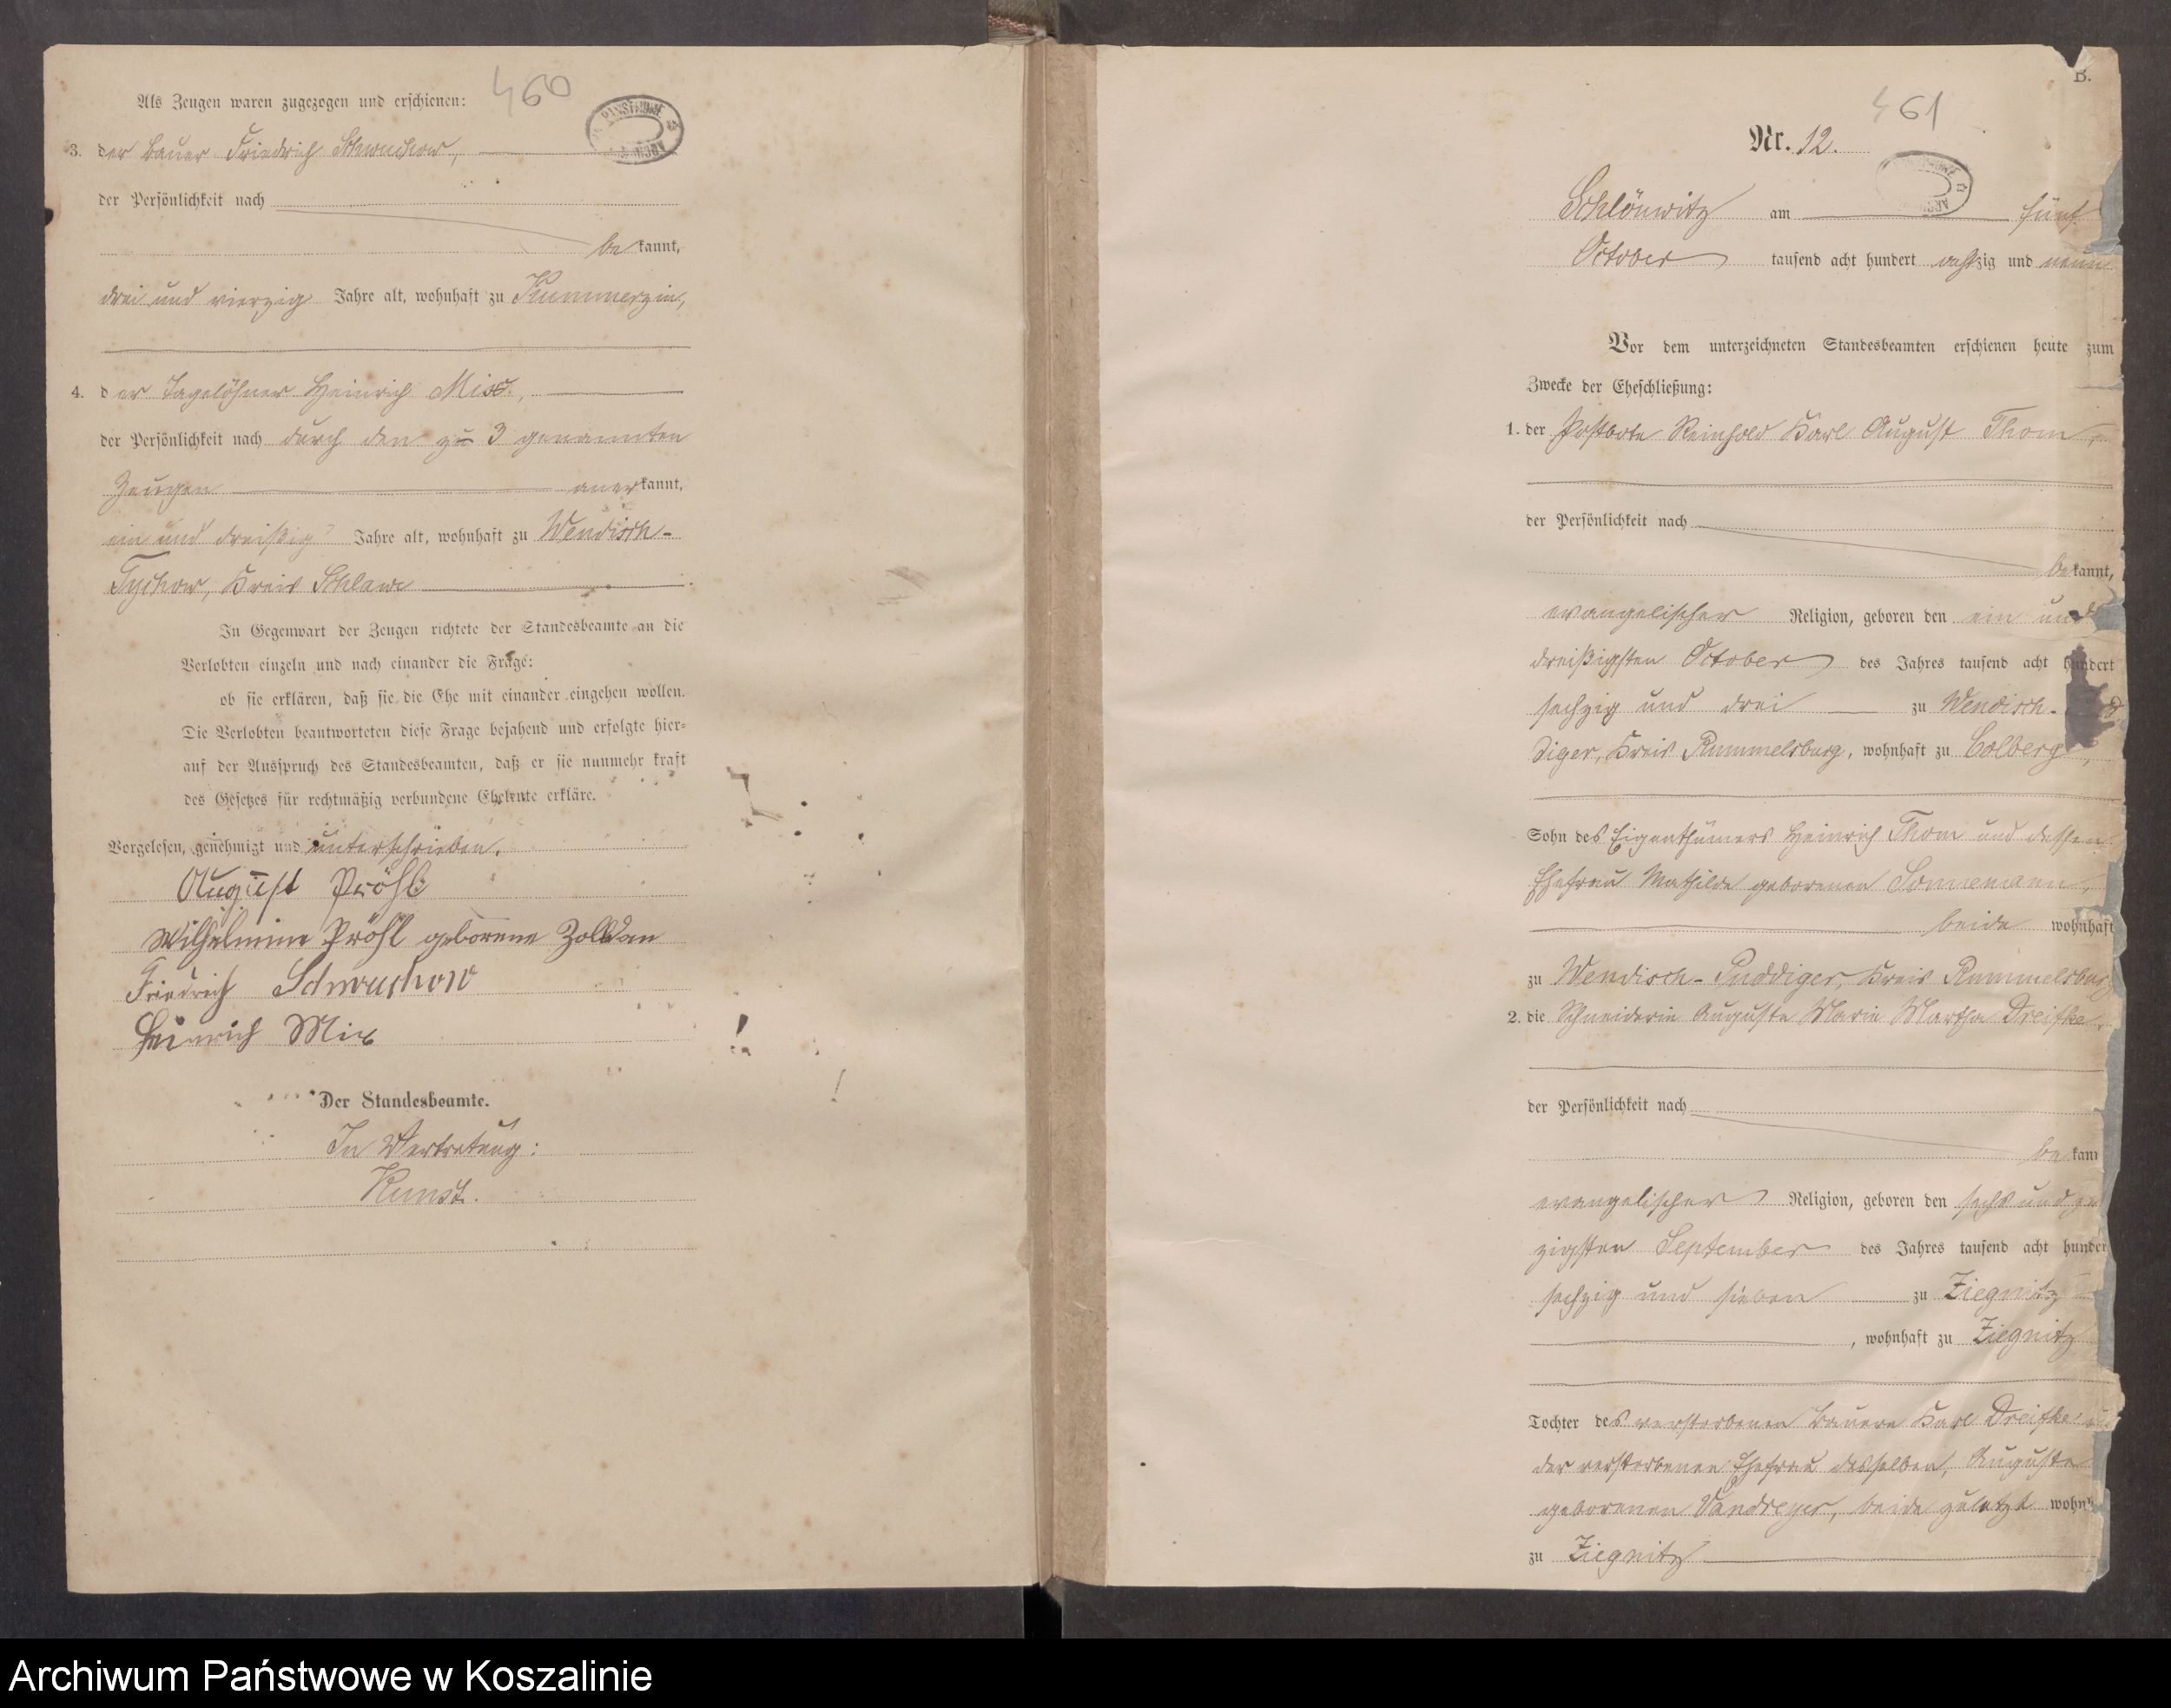 460
Als Zeugen waren zugezogen und erschienen:
3. der Bauer Friedrich Schwuchow,
der Persönlichkeit nach
bekannt,
drei und vierzig Jahre alt, wohnhaft zu Kummerzin,
4. der Tagelöhner Heinrich Mix,
der Persönlichkeit nach durch den zu 3 genannten
Zeugen anerkannt,
ein und dreißig Jahre alt, wohnhaft zu Wendisch-
Tychow, Kreis Schlawe
In Gegenwart der Zeugen richtete der Standesbeamte an die
Verlobten einzeln und nach einander die Frage:
ob sie erklären, daß sie die Ehe mit einander eingehen wollen.
Die Verlobten beantworteten diese Frage bejahend und erfolgte hier-
auf der Ausspruch des Standesbeamten, daß er sie nunmehr kraft
des Gesetzes für rechtmäßig verbundene Eheleute erkläre.
Vorgelesen, genehmigt und unterschrieben.
August Pröhl
Wilhelmine Pröhl geborene Zolldan
Friedrich Schwuchow
Heinrich Mix
Der Standesbeamte.
In Vertretung:
Kunst.
B.
461
Nr. 12.
Schlönwitz am fünf
October tausend acht hundert achtzig und neun
Vor dem unterzeichneten Standesbeamten erschienen heute zum
Zwecke der Eheschließung:
1. der Postbote Reinhold Karl August Thom,
der Persönlichkeit nach
bekannt,
evangelischer Religion, geboren den ein und
dreißigsten October des Jahres tausend acht hundert
sechzig und drei zu Wendisch-
diger, Kreis Rummelsburg, wohnhaft zu Colberg,
Sohn des Eigenthümers Heinrich Thom und dessen
Ehefrau Mathilde geborenen Sonnemann,
beide wohnhaft
zu Wendisch-Puddiger, Kreis Rummelsburg
2. die Schneiderin Auguste Marie Martha Dreifke,
der Persönlichkeit nach
bekann
evangelischer Religion, geboren den sechs und
zigsten September des Jahres tausend acht hunder
sechzig und sieben zu Ziegnitz
, wohnhaft zu Ziegnitz
Tochter des verstorbenen Bauern Karl Dreifke
der verstorbenen Ehefrau desselben, Auguste
geborenen Vandreyer, beide zuletzt wohn
zu Ziegnitz
Archiwum Państwowe w Koszalinie